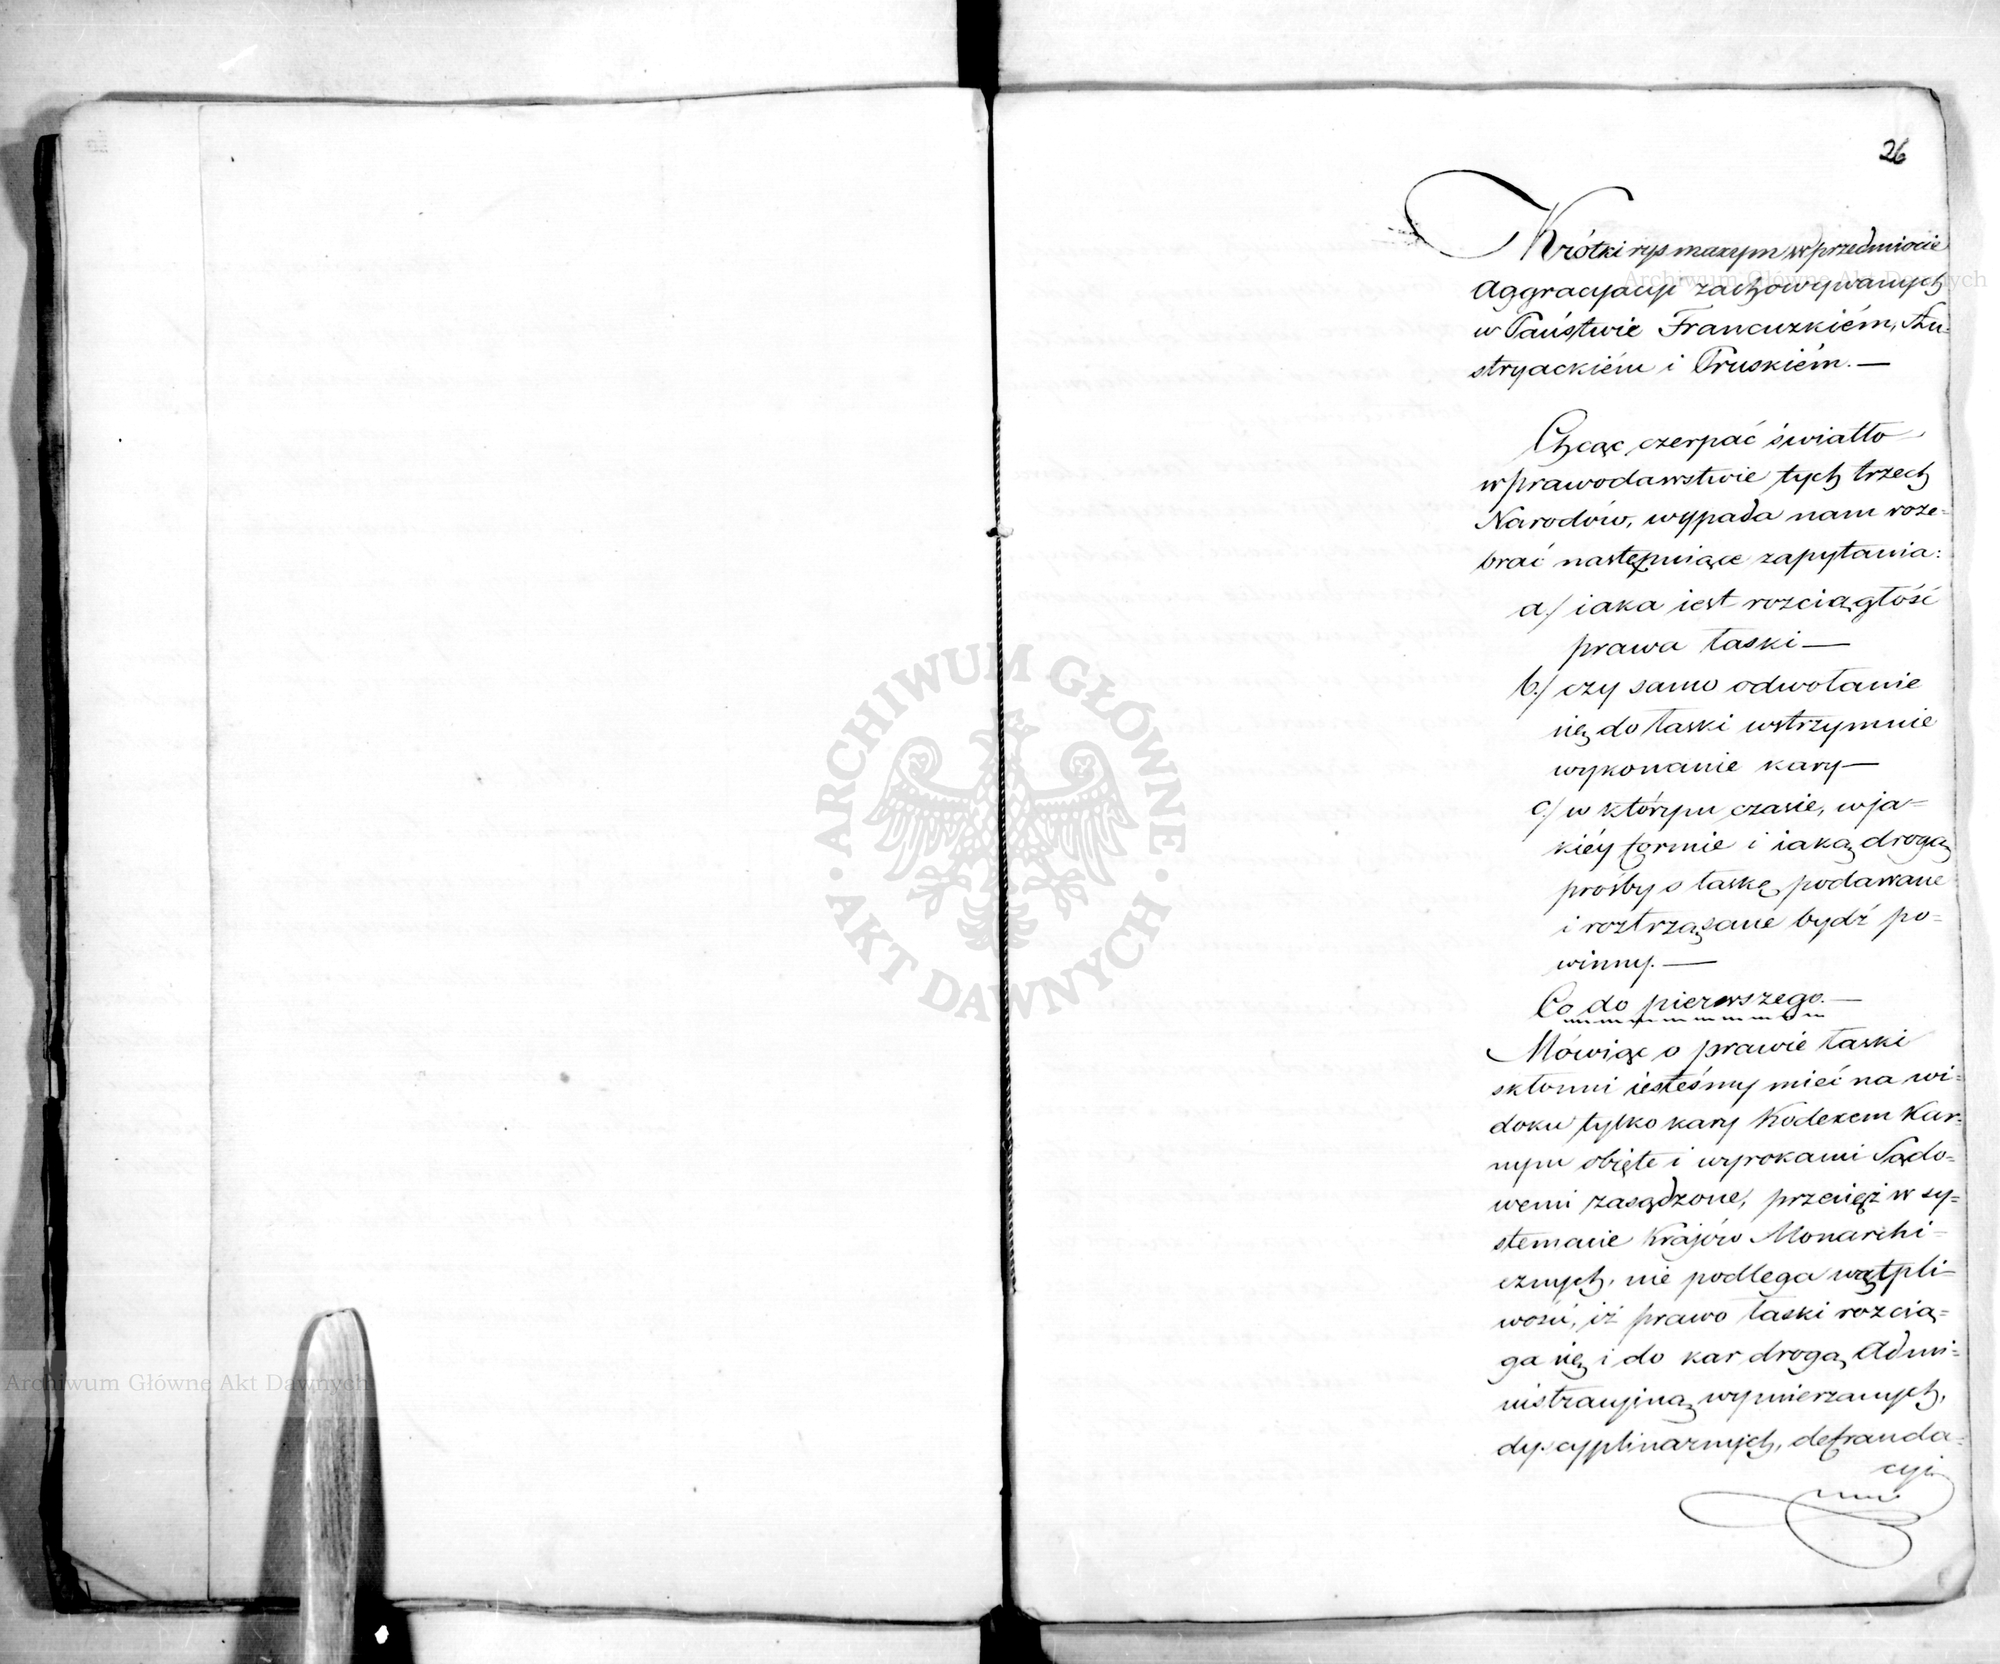 26
Krótki rys maxym w przedmiocie
Aggracyacyi zachowywanych
w Państwie Francuzkiém, Au-
stryackiém i Pruskiém. —
Chcąc czerpać światło
w prawodawstwie tych trzech
Narodów, wypada nam roze-
brać następuiące zapytania:
a/ iaka iest rozciągłość
prawa łaski —
b/ czy samo odwołanie
się do łaski wstrzymuie
wykonanie kary —
c/ w którym czasie, w ja-
kiéy formie i iaką drogą
prośby o łaskę podawane
i roztrząsane bydź po-
winny. —
Co do pierwszego. —
Mówiąc o prawie łaski
skłonni iesteśmy mieć na wi-
doku tylko kary Kodexem Kar-
nym obięte i wyrokami Sądo-
wemi zasądzone, przecięż w sy-
stemacie Krajów Monarchi-
cznych, nie podlega wątpli-
wości, iż prawo łaski rozcią-
ga się i do kar drogą Admi-
nistracyjną wymierzanych,
dyscyplinarnych, defrauda-
cyi
Archiwum Główne Akt Dawnych
ARCHIWUM GŁÓWNE · AKT DAWNYCH ·
Archiwum Główne Akt Dawnych